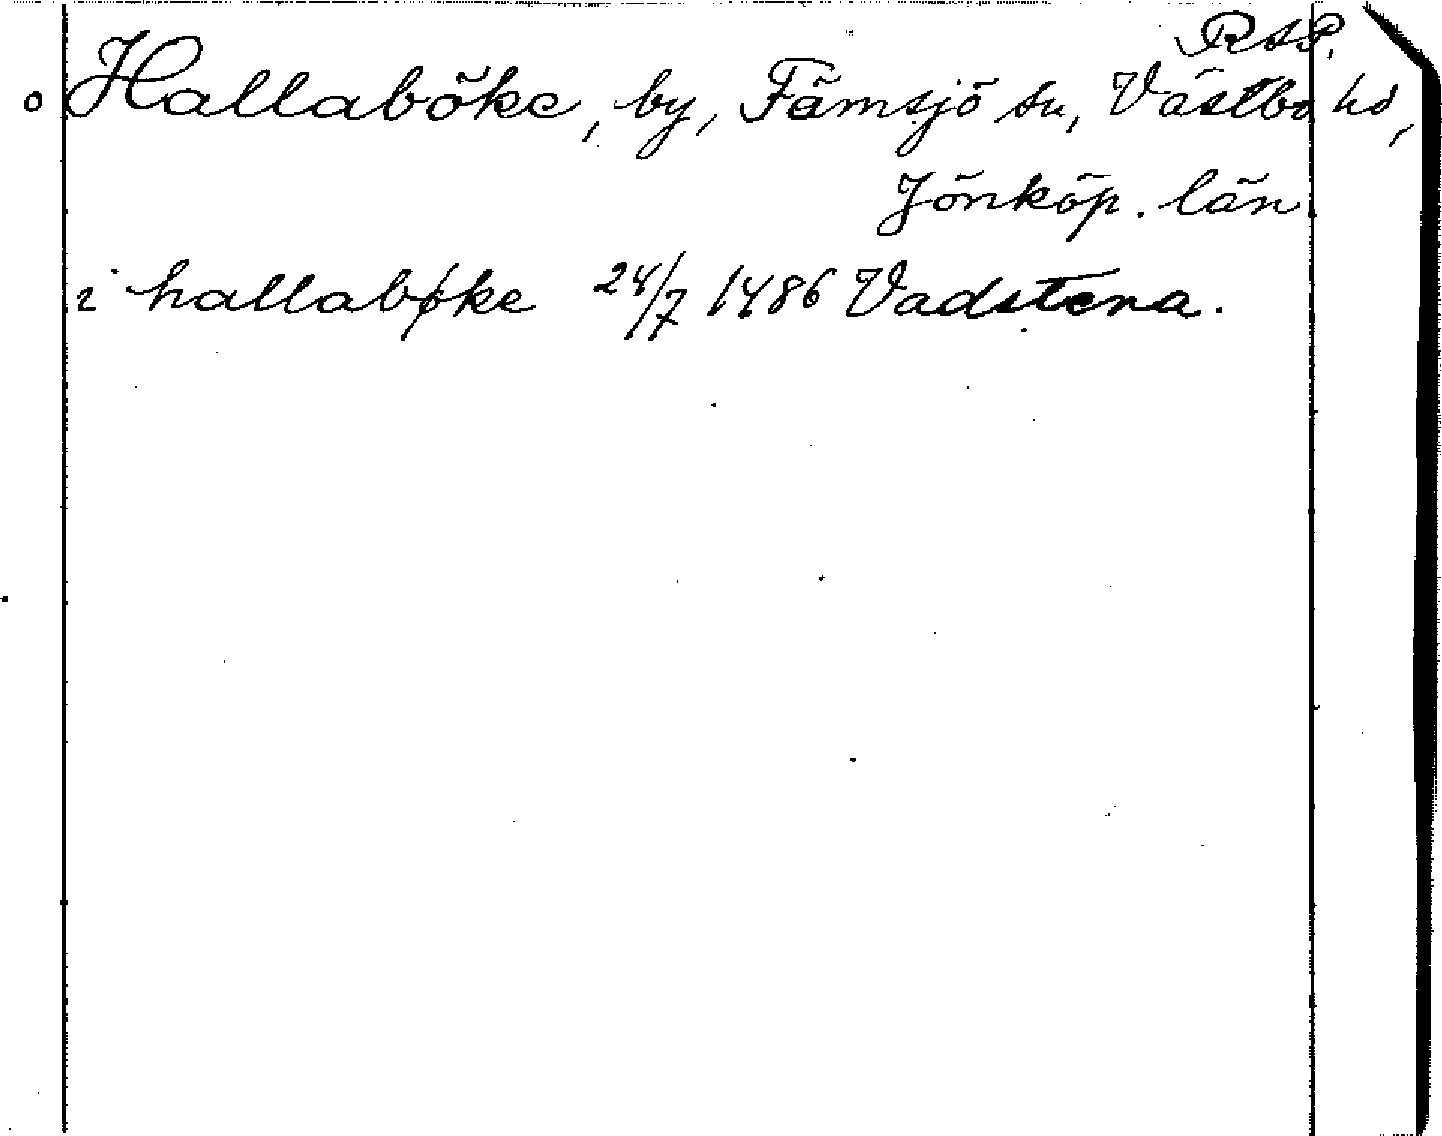 RAP.
o Hallaböke, by, Fämsjö sn, Västbo hd,
Jönköp. län
i hallabøke 24/7 1486 Vadstena.